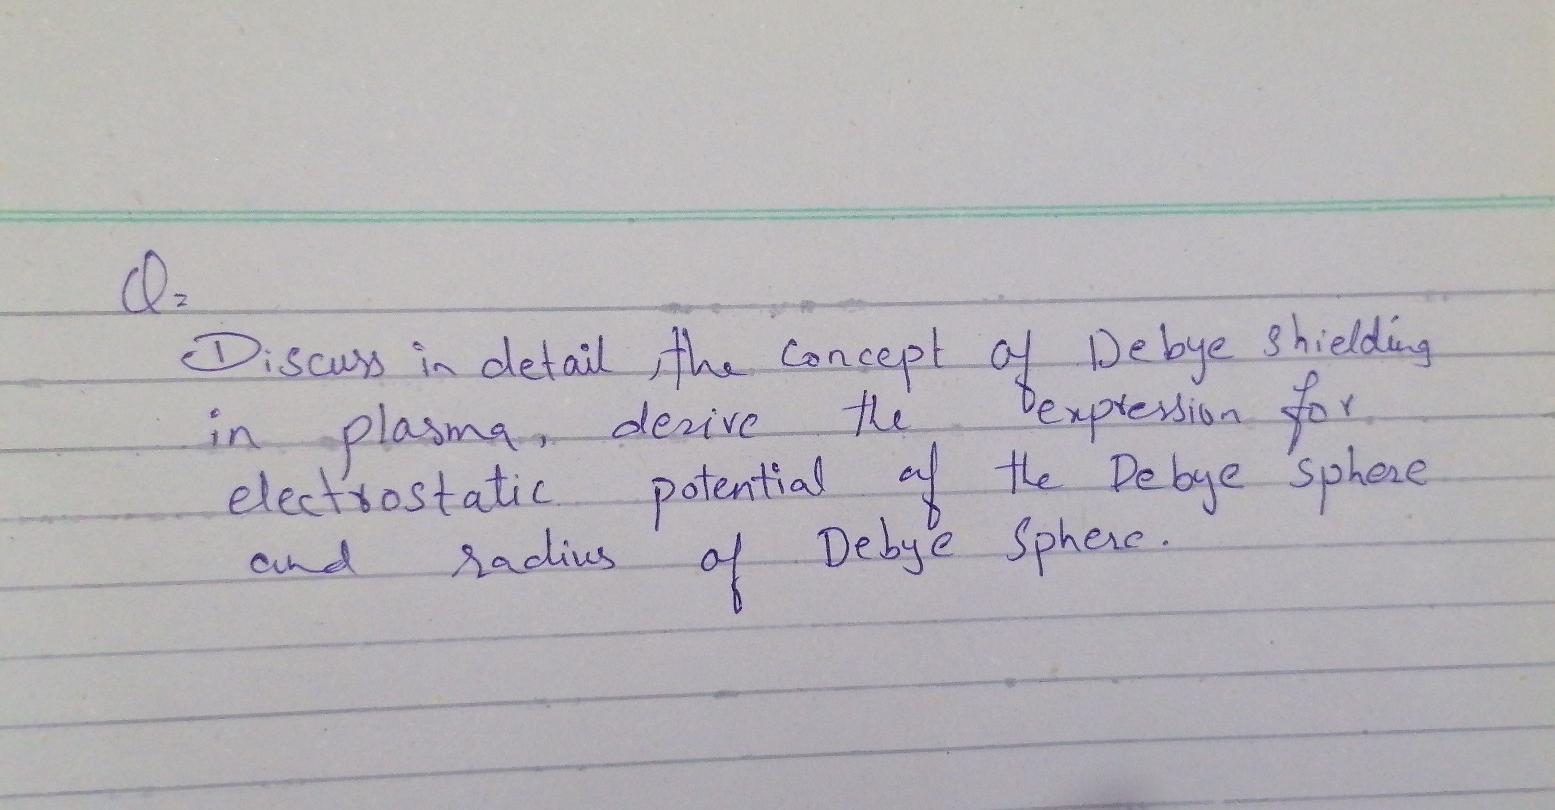 Q2
Discuss in detail, the concept of Debye shielding
in plasma, derive the expression for
electrostatic potential of the Debye sphere
and radius of Debye Sphere.